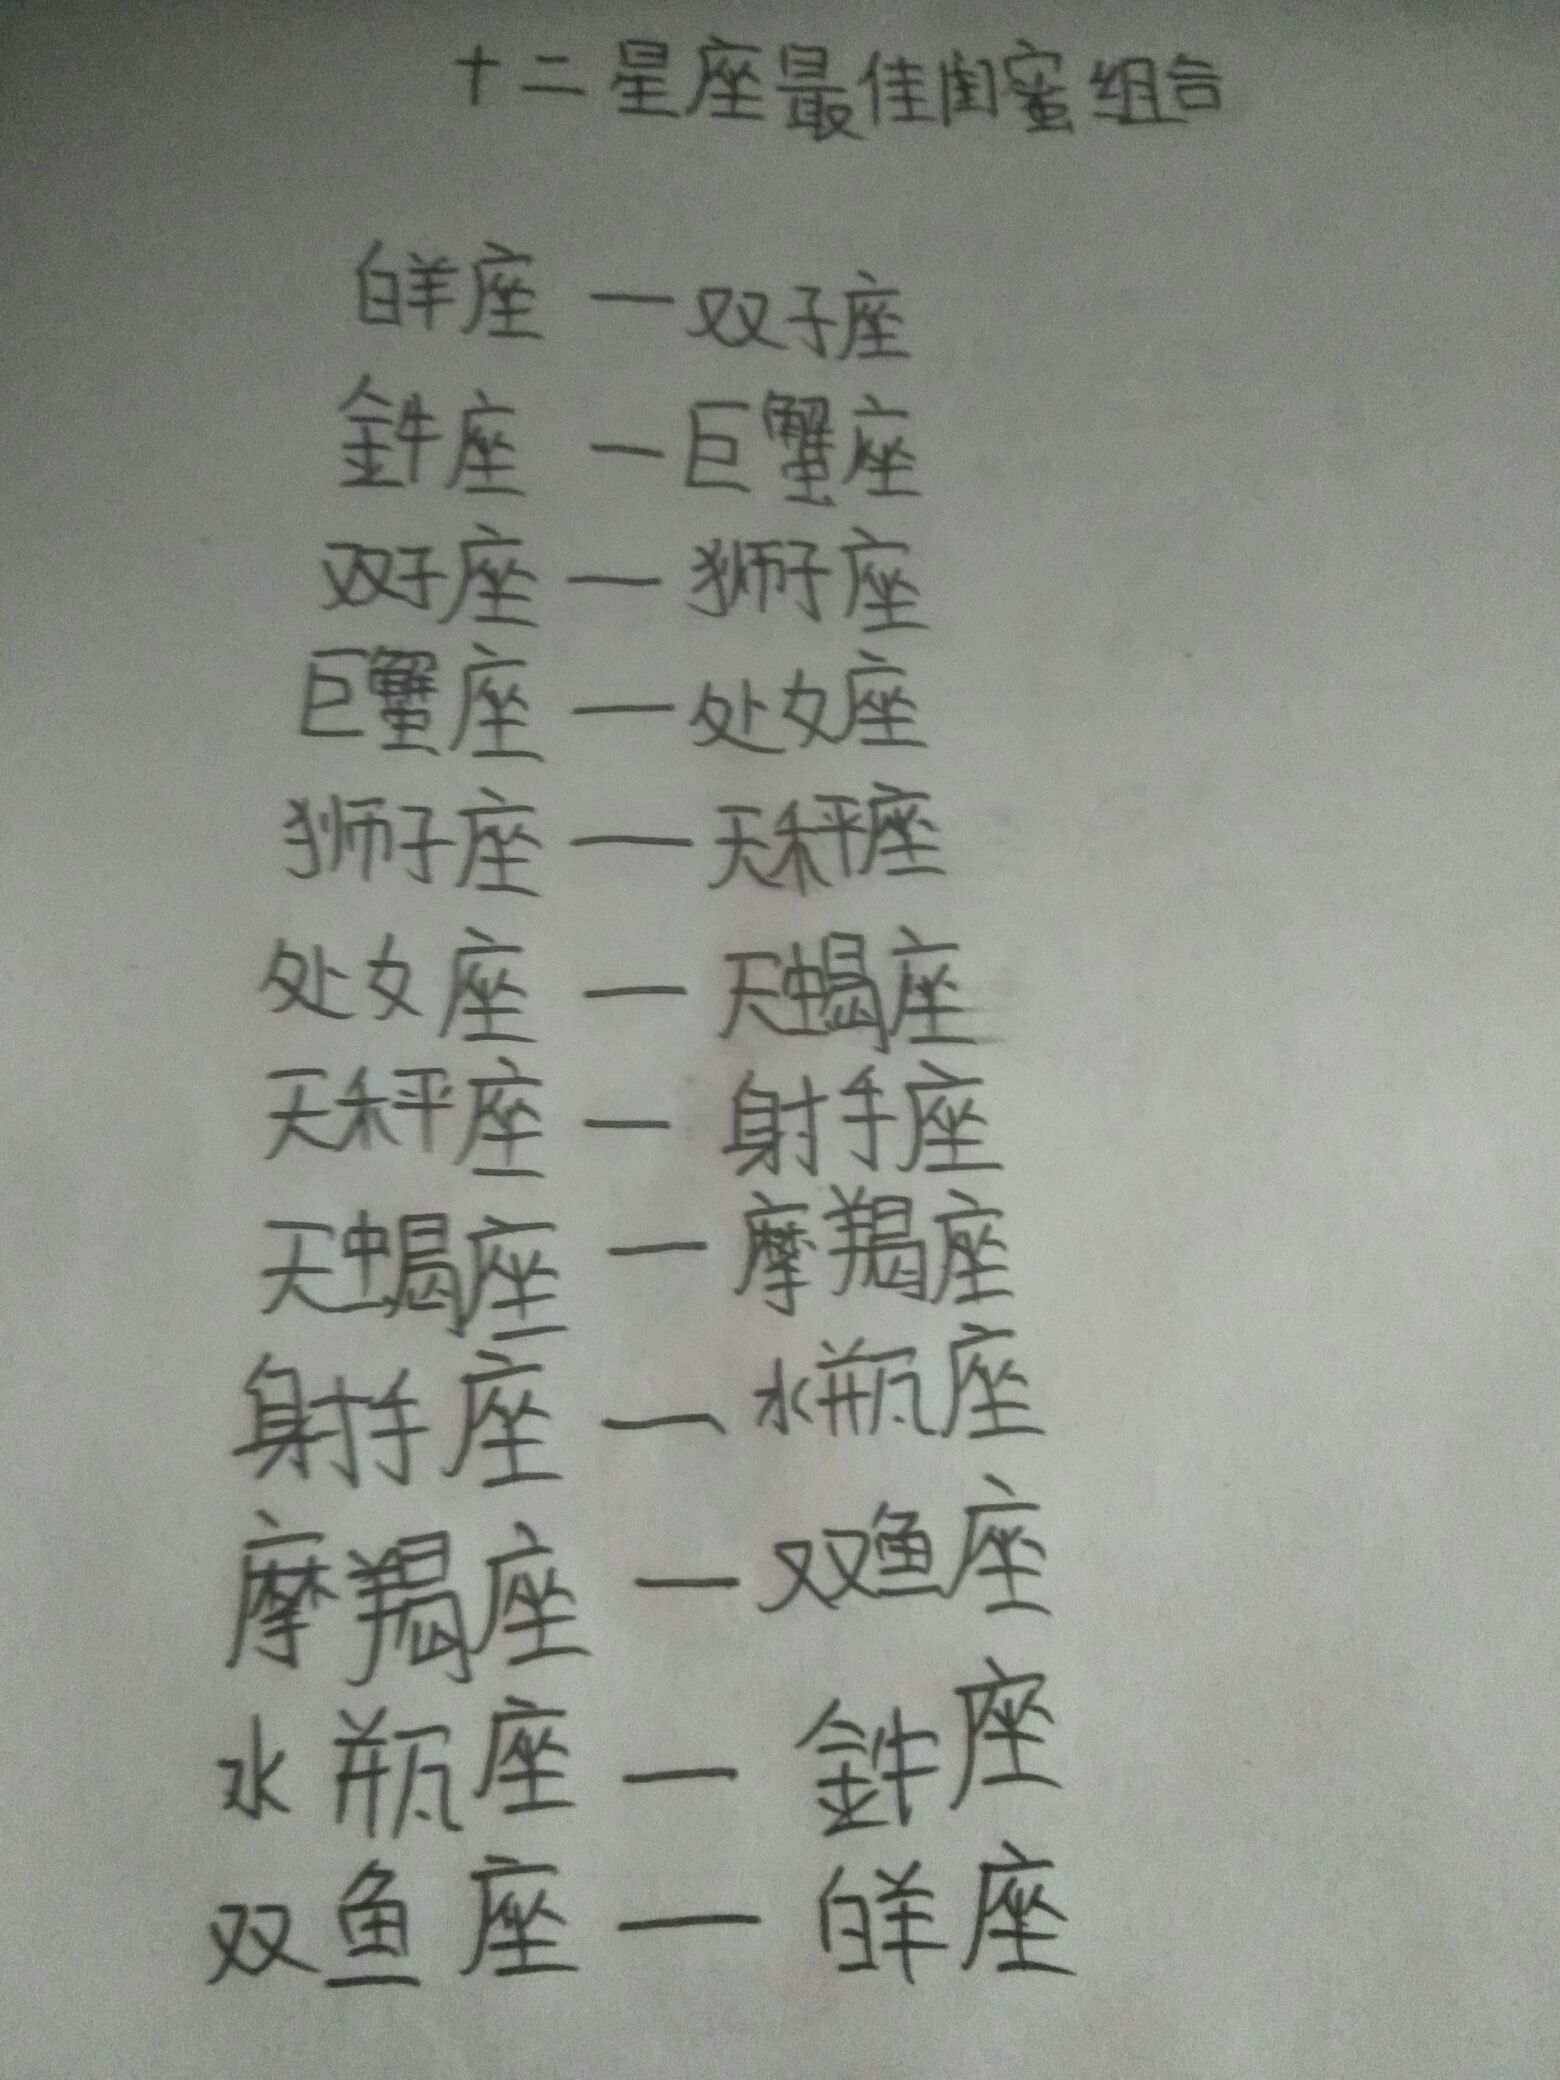 十二星座最佳闺蜜组合
白羊座一双子座
金牛座一巨蟹座
双子座一狮子座
巨蟹座一处女座
狮子座一天秤座
处女座一天蝎座
天秤座一射手座
天蝎座一摩羯座
射手座一水瓶座
摩羯座一双鱼座
水瓶座一金牛座
双鱼座一白羊座